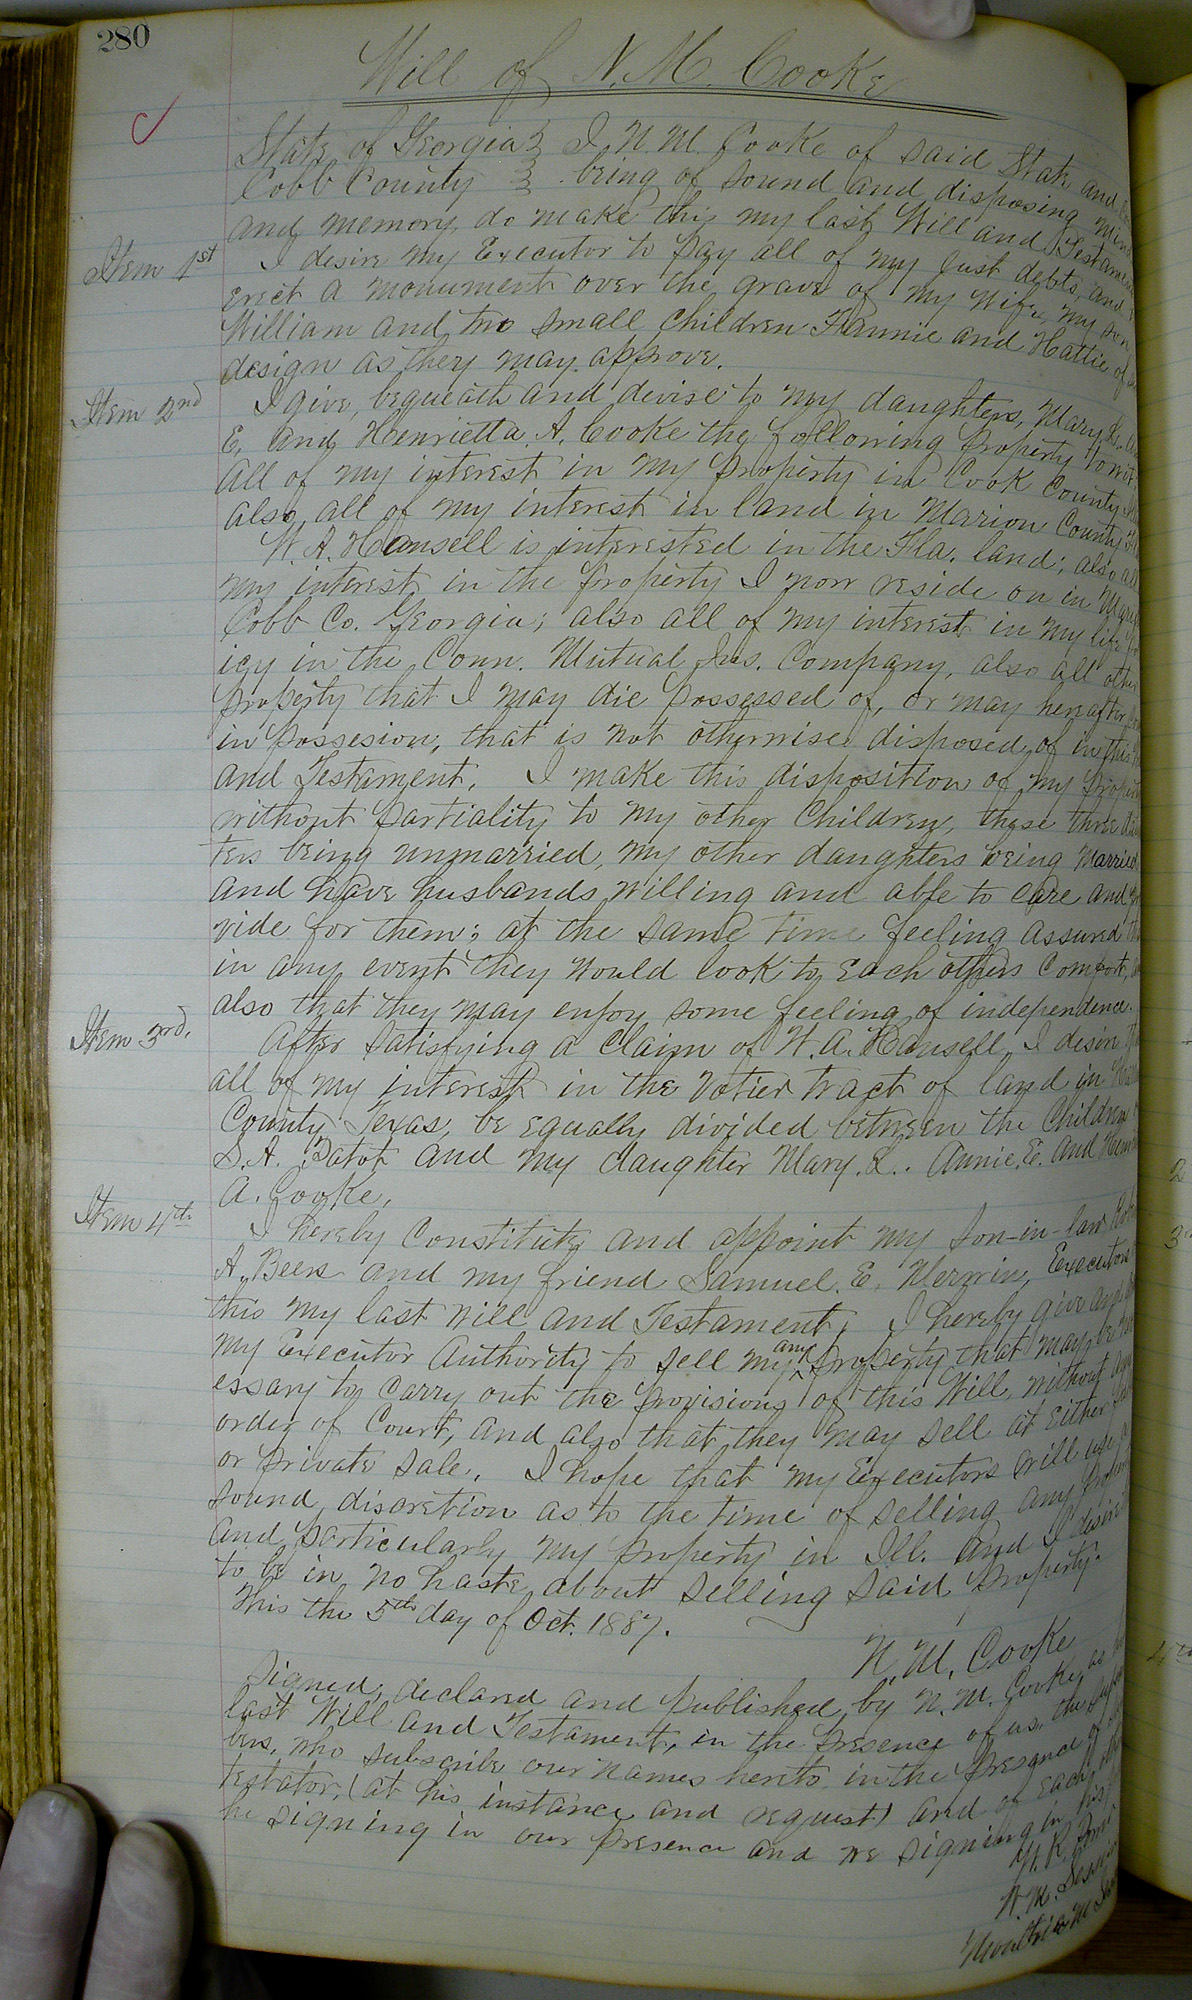 280
Will of N. M. Cooke
State of Georgia } I N. M. Cooke of said State and
Cobb County } being of sound and disposing mind
and memory, do make this my last Will and Testament
Item 1st I desire my Executor to pay all of my just debts, and
erect a monument over the grave of my Wife, my son
William and two small children Fannie and Hattie of
design as they may approve.
Item 2nd I give, bequeath and devise to my daughters, Mary L.
E. and Henrietta A. Cooke the following property towit
All of my interest in my property in Cook County
also all of my interest in land in Marion County
W. A. Hansell is interested in the Fla. land; also all
my interest in the property I now reside on in
Cobb Co. Georgia; also all of my interest in my life
icy in the Conn. Mutual Ins. Company, also all other
property that I may die possessed of, or may hereafter
in possesion, that is not otherwise disposed of in this
and Testament. I make this disposition of my
without partiality to my other Children, these three
ters being unmarried, my other daughters being married
and have husbands willing and able to care and
vide for them; at the same time feeling assured
in any event they would look to each others comfort,
also that they may enjoy some feeling of independence.
Item 3rd. After satisfying a claim of W. A. Hansell, I desire
all of my interest in the Votier tract of land in
County Texas, be equally divided between the Children
S. A. and my daughter Mary. L.. Annie. E. and
A. Cooke.
Item 4th I hereby Constitute and appoint my Son-in-law
A. Beers and my friend Samuel. E. Kerwin, Executors
this my last Will and Testament, I hereby give
my Executor Authority to sell my any property that may be
essary to carry out the provisions of this Will, without
order of Court, and also that they may sell at either
or private sale. I hope that my Executors will use
sound discretion as to the time of selling any
and particularly my property in Ill. and I desire
to be in no haste about selling said property.
This the 5th day of Oct. 1887.
N. M. Cooke
Signed, declared and published by N. M. Cooke, as
last Will and Testament, in the presence of us. the
bers, who subscribe our names hereto in the presence of
testator, (at his instance and request) and of each
he signing in our presence and we signing in his
W. R.
W. M.